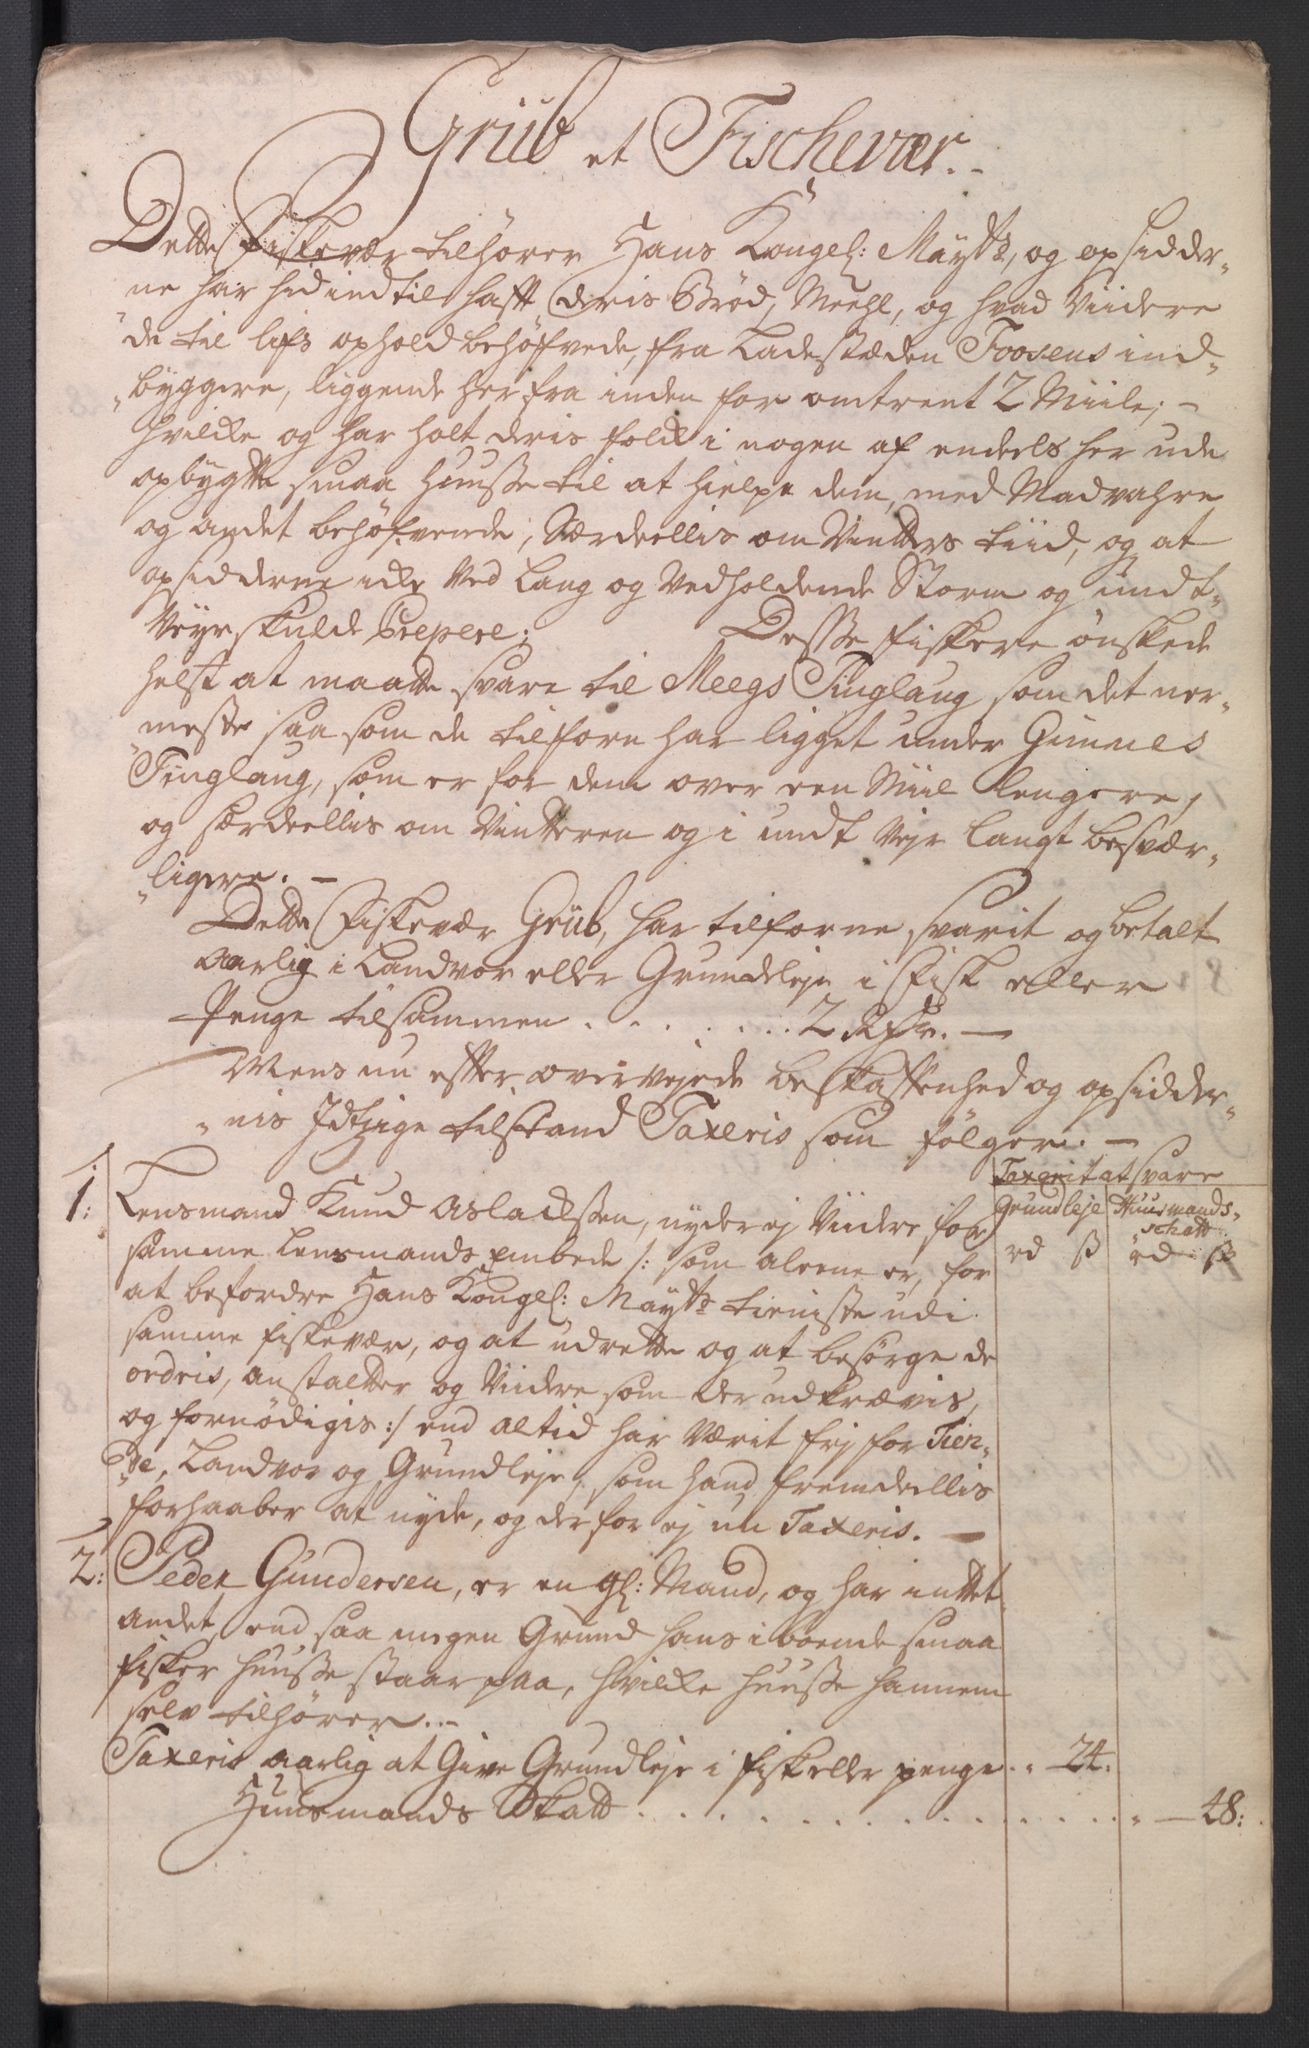 Griib et Fischevær.-
Dette Fiskevær tilhører Hans Kongel: Maytt:, og opsidder-
"ne har hid ind til hafft deris Brød, Meehl, og hvad Viidere
de til lifs ophold behøffvede, fra Ladestæden Foosens ind-
"byggere, liggende her fra inden for omtrent 2 Miile; -
hvilcke og har holt deris folck i nogen af endeels her ude
opbygtte smaa Huusse til at hielpe dem, med Madvahre
og andet behøfvende, Særdeellis om Vintters tiid, og at
opsidderne icke Ved lang og Vedholdende Storm og undt-
Veyr skulde Crepere; Desse fiskere ønskede
helst at maatte svare til Meegs Tinglaug som det ner-
"meste saa som de tilforn har ligget under Gimnes
Tinglaug, som er for dem over een Miil lengere,
og særdeellis om Vintteren og i undt Vejr langt besvær-
"ligere. -
Dette Fiskevær Griib, har tilforne svarit og betalt
Aarlig i Landvor eller Grundleje i Fisk eller
Penge tilsammen . . . . . . . 2 Rdr. -
Mens nu effter overvejede beskaffenhed og opsidder-
"nis Jdtzige tilstand Taxeris som følger. -
Taxerit at svare
Grundleje Huusmands-
"schatt
rd ß rd ß
1: Lensmand Knud Aslachssen, nyder ej Viidere for
samme Lensmands Embede /: som aleene er, for
at befordre Hans Kongel: Maytts tieniste udi
samme fiskevær, og at udrette og at besørge de
ordris, anstaltter og Viidre som der udkrævis,
og fornødigis :/ end altid har Værit frj for Tien-
"de, Landvor og Grundleje, som hand fremdeellis
forhaaber at nyde, og derfor ej nu Taxeris. -
2: Peder Gundersen, er en gl: Mand, og har inttet
andet, end saa megen Grund hans iboende smaa
fisker huusse staar paa, hvilcke huusse hannem
selv tilhører. -
Taxeris aarlig at Give Grundleje i fisk eller penge . " - 24.
Huusmands Skatt . . . . . . . . . . . . . . " - 48: